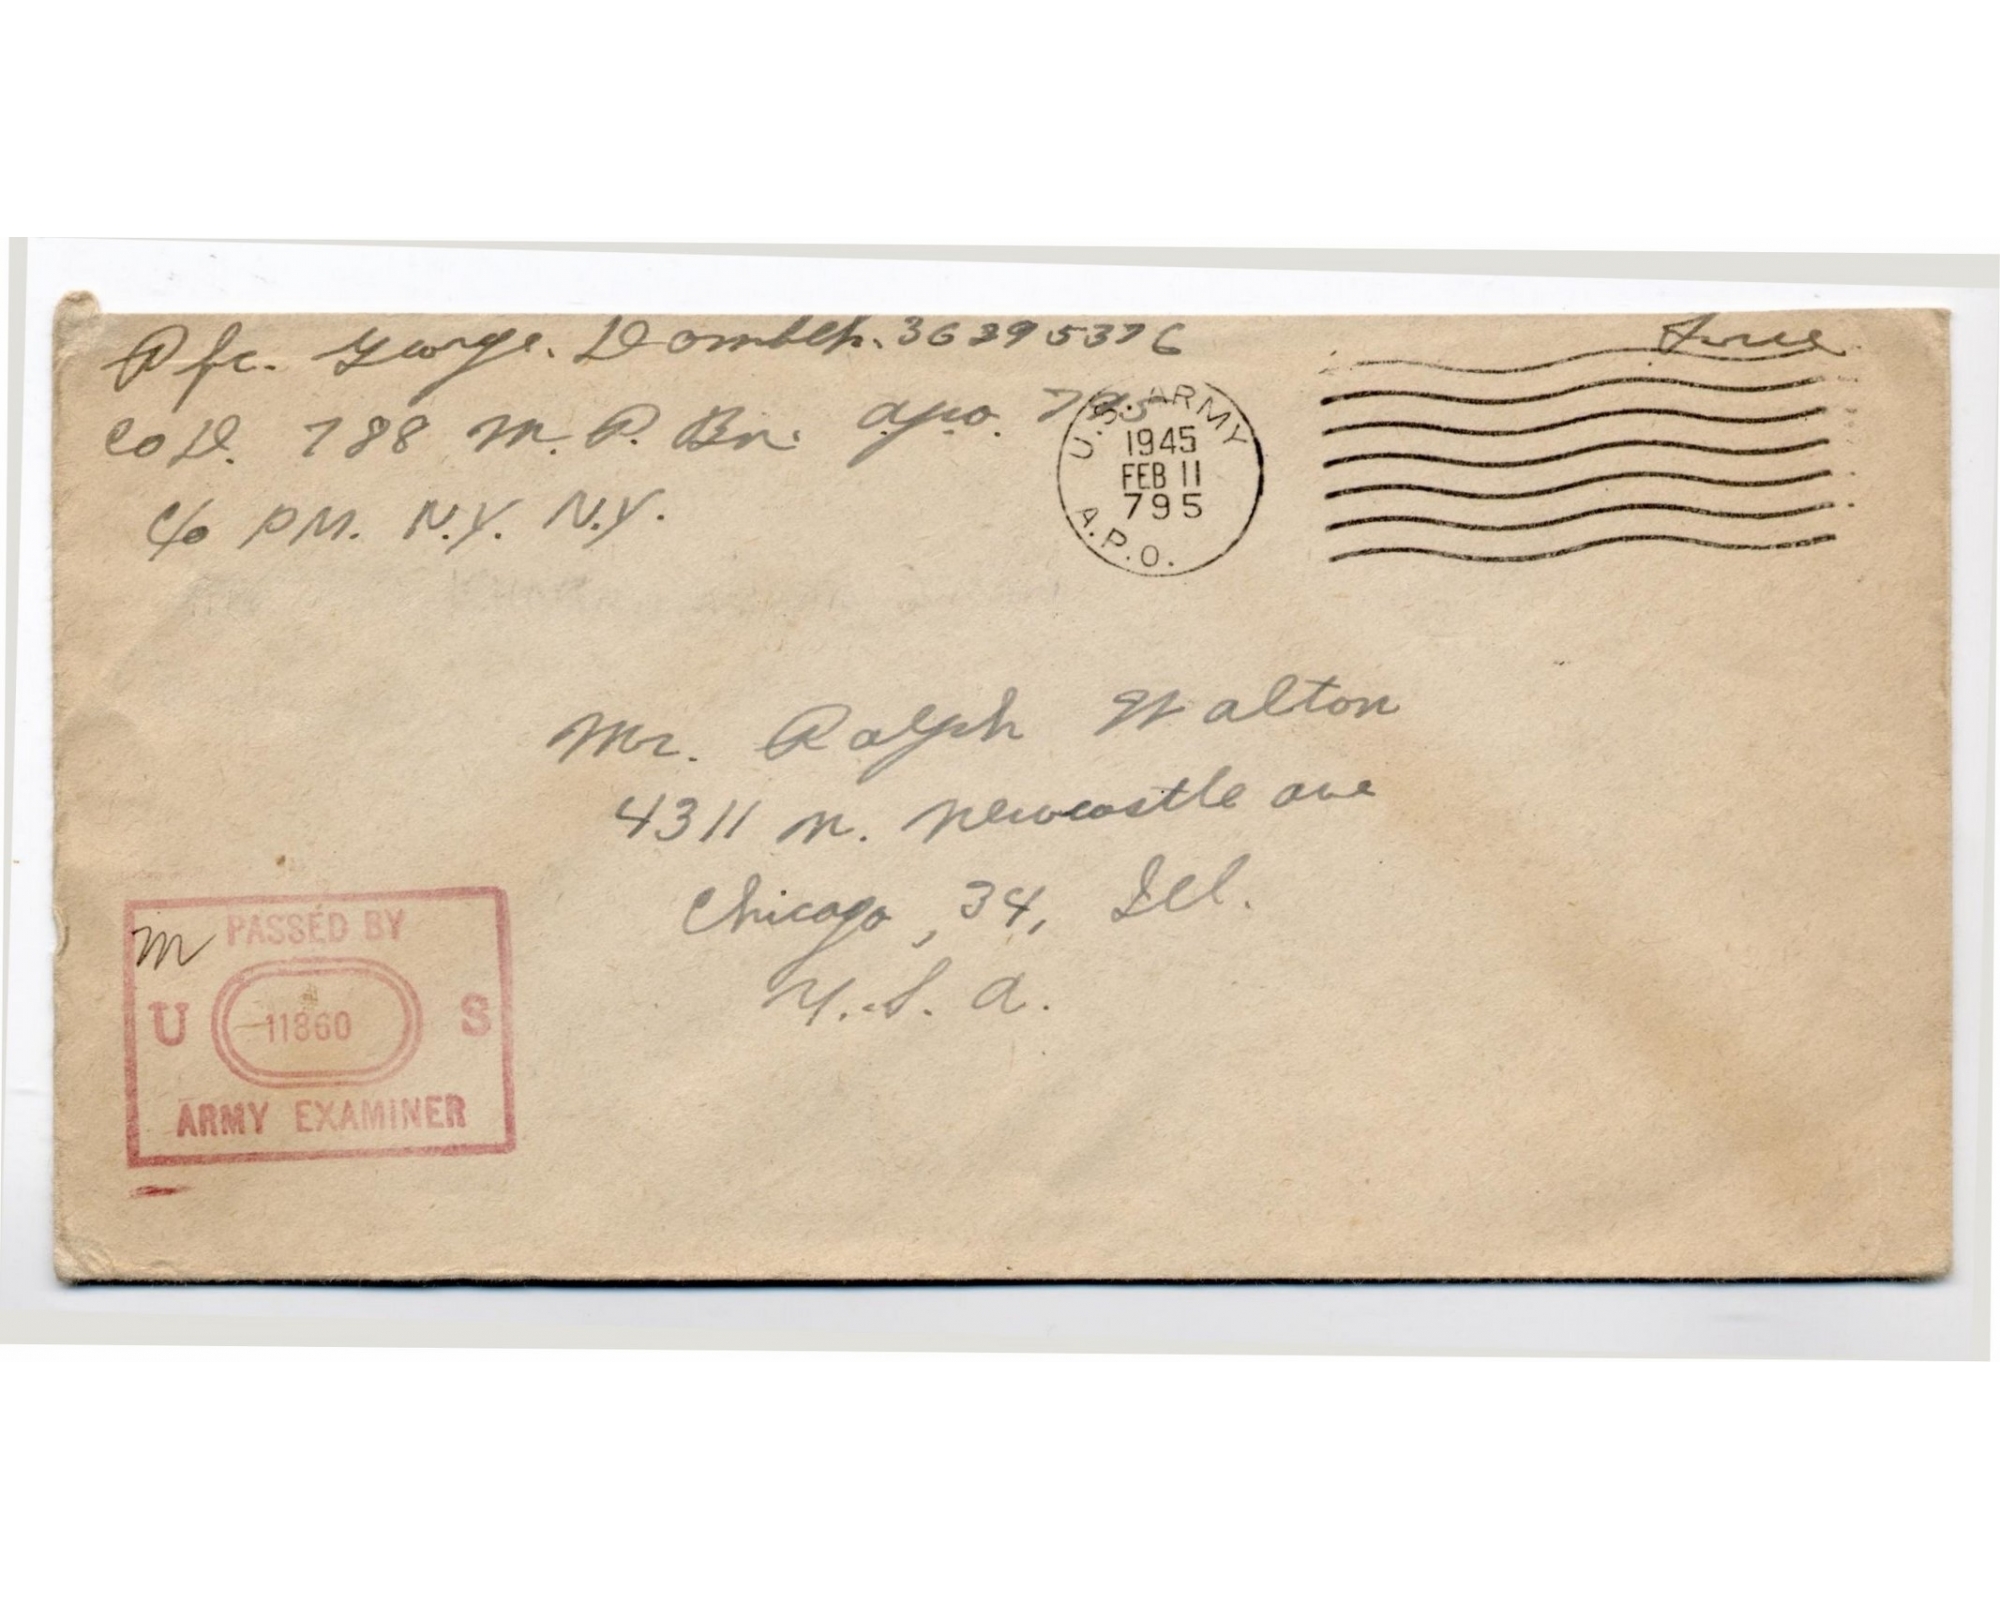 Pfc. George. Dombek. 36395376
Free
Co D. 788 M. P. Bn. apo. 795
c/o PM. N.Y. N.Y.
U.S. ARMY
1945
FEB 11
795
A.P.O.
Mr. Ralph Walton
4311 N. Newcastle ave
Chicago, 34, Ill.
U.S.A.
M
PASSED BY
U 11860 S
ARMY EXAMINER